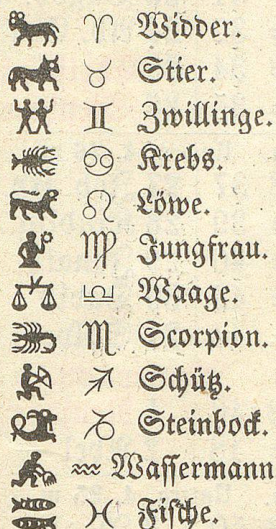 ♈ Widder.
♉ Stier.
♊ Zwillinge.
♋ Krebs.
♌ Löwe.
♍ Jungfrau.
♎ Waage.
♏ Scorpion.
♐ Schütz.
♑ Steinbock.
♒ Wassermann
♓ Fische.